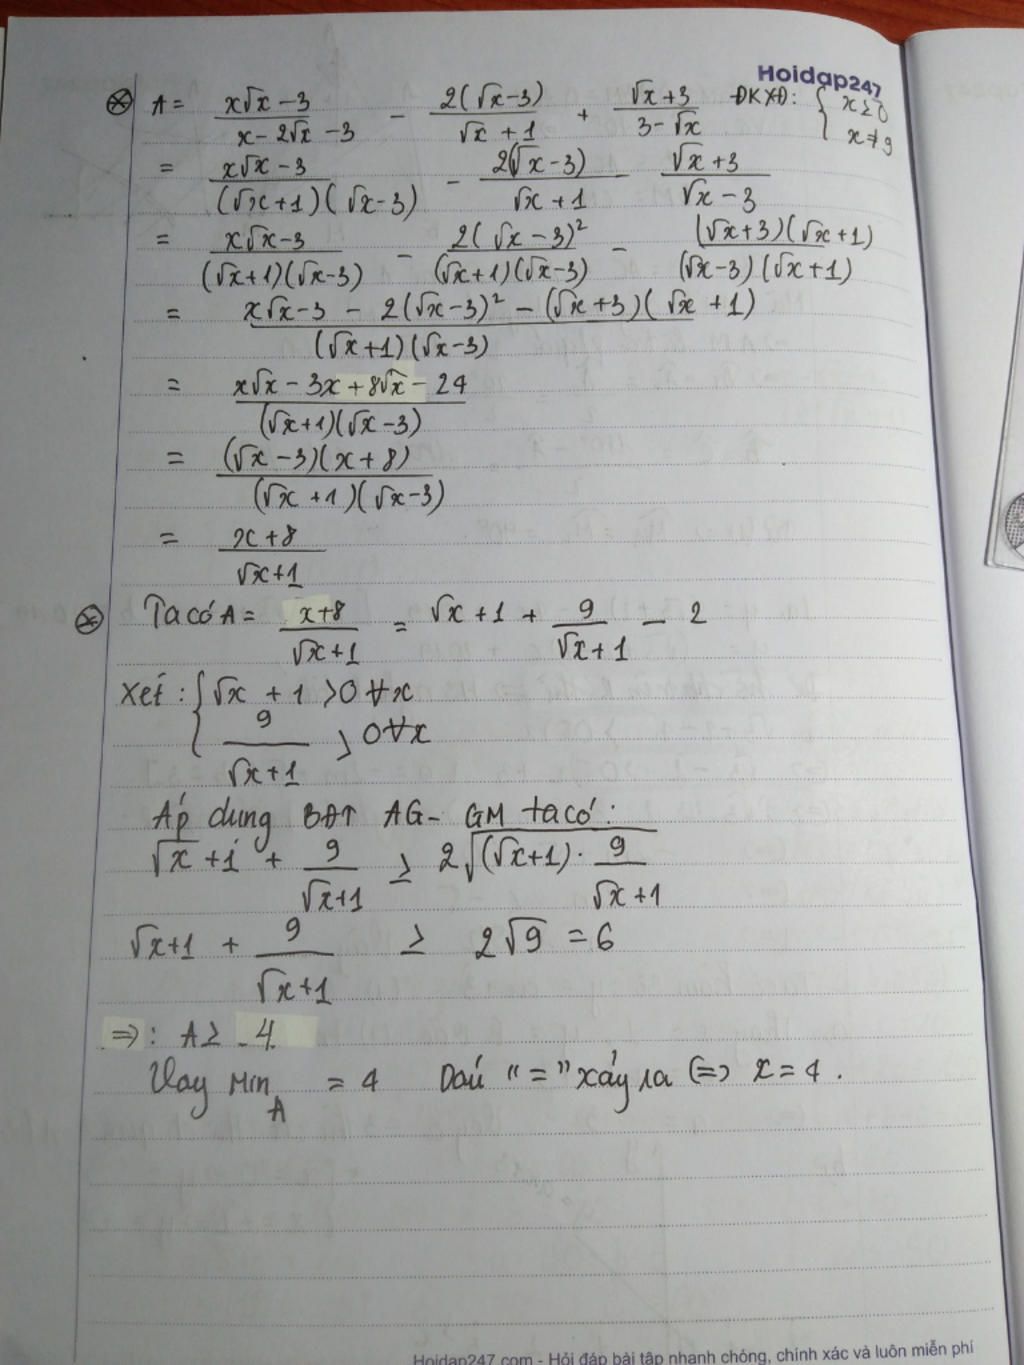 Hoidap247
⊗ A = (x√x - 3)/(x - 2√x - 3) - 2(√x-3)/(√x + 1) + (√x+3)/(3-√x) ĐKXĐ: { x ≥ 0
x ≠ 9
= (x√x - 3)/((√x+1)(√x-3)) - 2(√x-3)/(√x+1) - (√x+3)/(√x-3)
= (x√x-3)/((√x+1)(√x-3)) - 2(√x-3)²/((√x+1)(√x-3)) - (√x+3)(√x+1)/((√x-3)(√x+1))
= (x√x-3 - 2(√x-3)² - (√x+3)(√x+1))/((√x+1)(√x-3))
= (x√x - 3x + 8√x - 24)/((√x+1)(√x-3))
= (√x-3)(x+8)/((√x+1)(√x-3))
= (x+8)/(√x+1)
⊗ Ta có A = (x+8)/(√x+1) = √x+1 + 9/(√x+1) - 2
Xét: { √x + 1 > 0 ∀x
9/(√x+1) > 0 ∀x
Áp dung BĐT AG- GM ta có:
√x+1 + 9/(√x+1) ≥ 2√((√x+1) · 9/(√x+1))
√x+1 + 9/(√x+1) ≥ 2√9 = 6
⇒: A ≥ 4
Vay Min A = 4 Dáu "=" xảy ra ⇔ x = 4.
Hoidap247.com - Hỏi đáp bài tập nhanh chóng, chính xác và luôn miễn phí